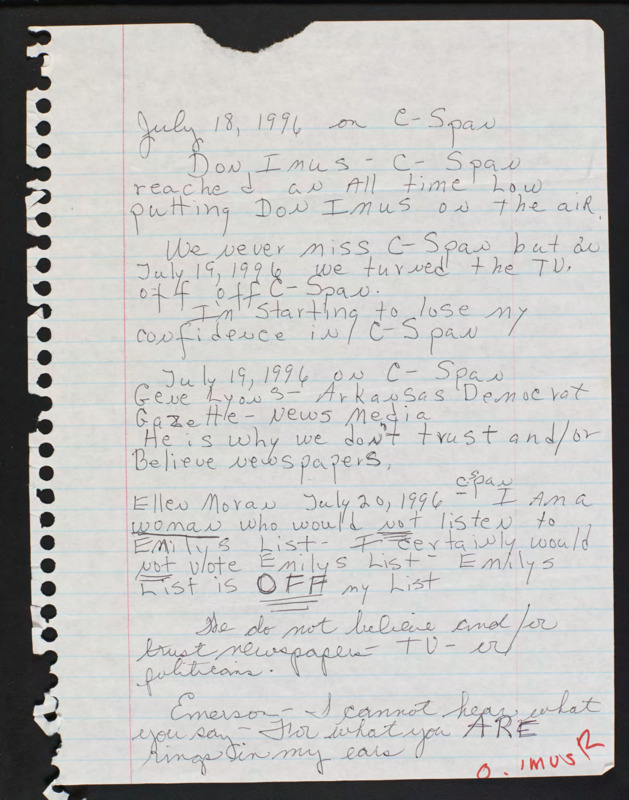 July 18, 1996 on C-Span
Don Imus - C-Span
reached an All time Low
putting Don Imus on the air.
We never miss C-Span but on
July 19, 1996 we turned the TV.
off off C-Span.
I'm starting to lose my
confidence in C-Span
July 19, 1996 on C-Span
Gene Lyons - Arkansas Democrat
Gazette - News Media
He is why we don't trust and/or
Believe newspapers.
cspan
Ellen Moran July 20, 1996 - I Am a
woman who would not listen to
Emilys List - I certainly would
not vote Emilys List - Emilys
List is OFF my List
We do not believe and/or
trust newspapers - TV - or
politicans.
Emerson - I cannot hear what
you say - For what you ARE
rings in my ears
O. imus R